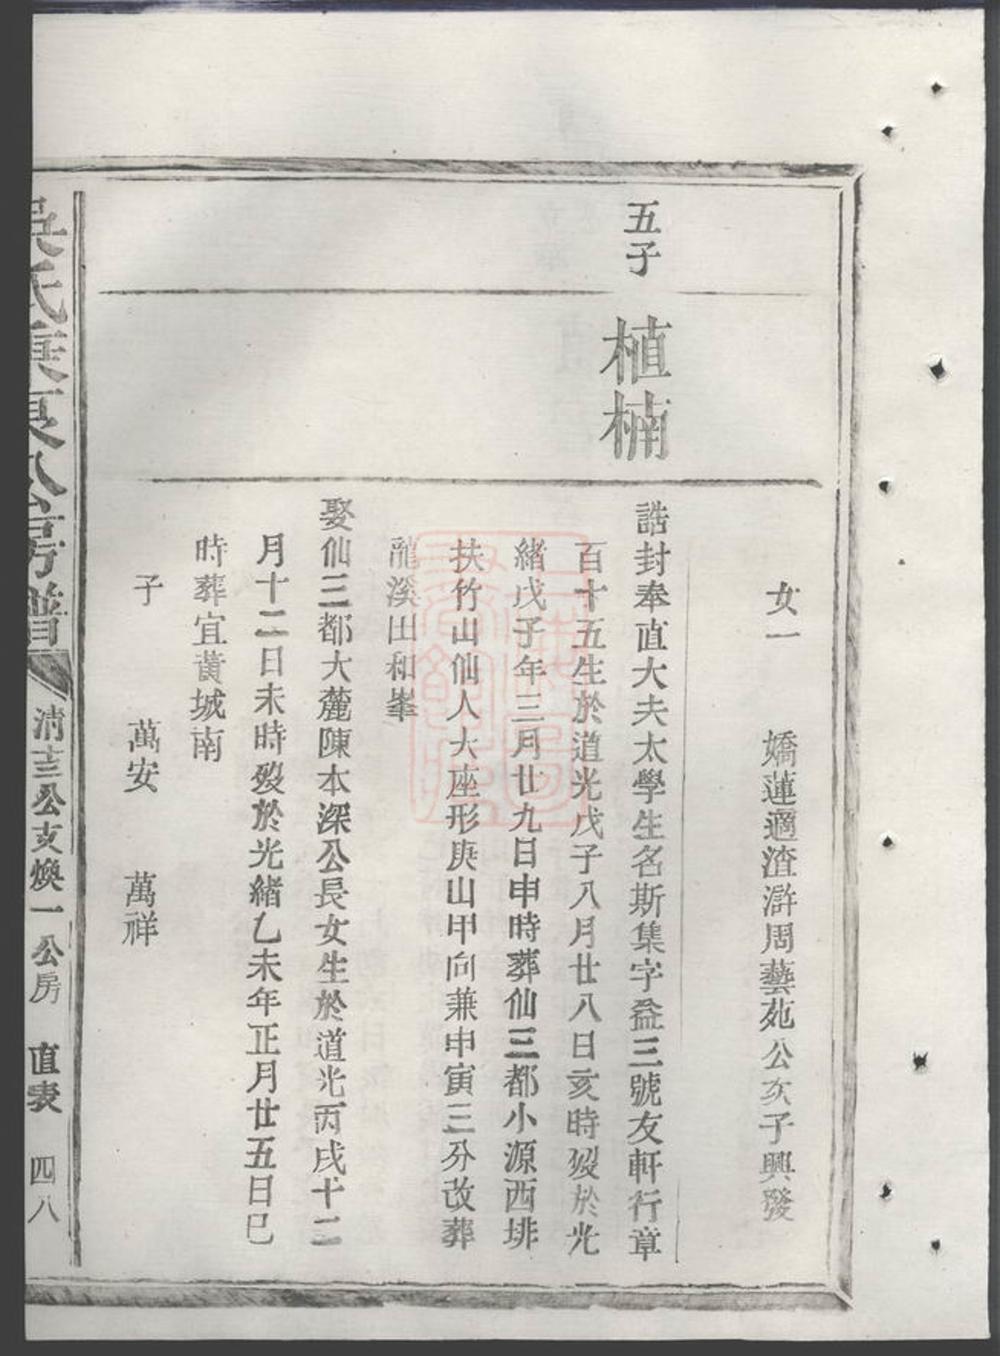 女一 嬌蓮適渣滸周藝苑公亥子興發
五子 植楠
誥封奉直大夫太學生名斯集字益三號友軒行章
百十五生於道光戊子八月廿八日亥時歿於光
緒戊子年三月廿九日申時葬仙三都小源西排
扶竹山仙人大座形庚山甲向兼申寅三分改葬
龍溪田和峯
娶仙三都大麓陳本深公長女生於道光丙戌十二
月十二日未時歿於光緒乙未年正月廿五日巳
時葬宜黃城南
子 萬安 萬祥
吳氏東公房譜 清吉公支煥一公房 直表 四八